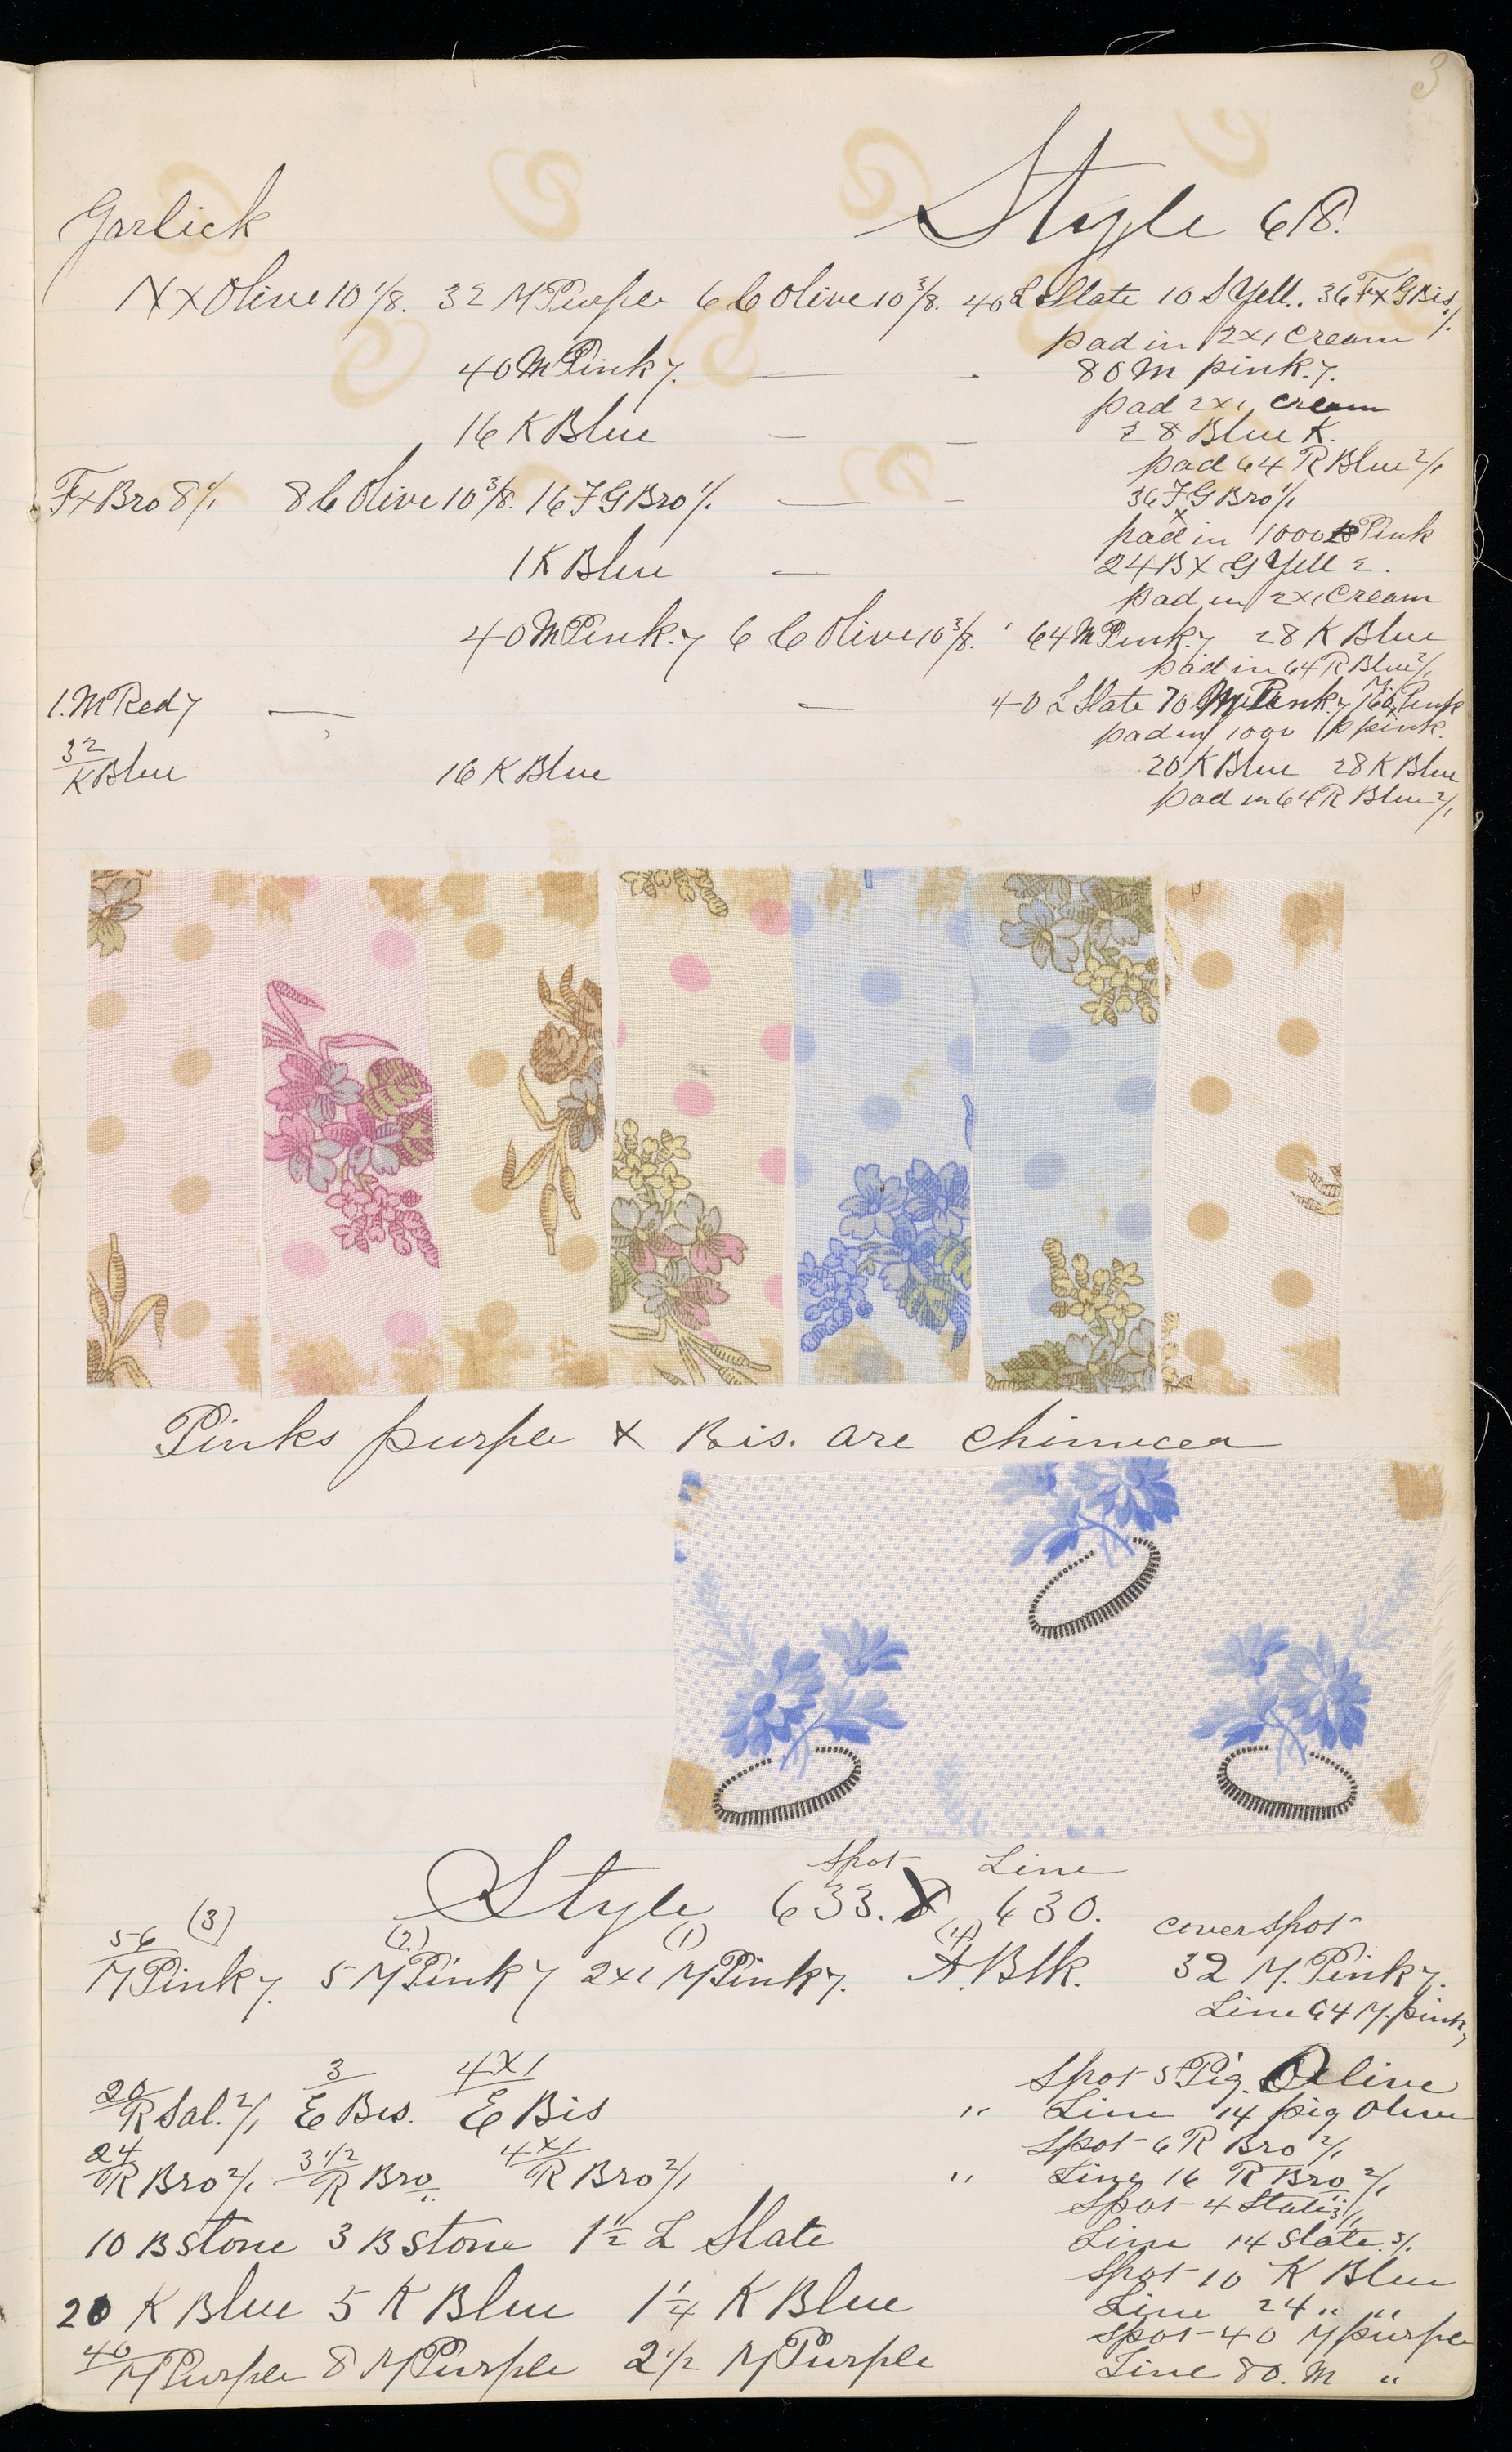 3
Garlick Style 618.
N x Olive 10 1/8. 32 M Purple 6 6 Olive 10 3/8. 40 L Slate 10 S Yell. 36 F x G Bis 1/.
pad in 2x1 Cream
40 M Pink 7. — - 80 M pink. 7.
pad 2x1 cream
16 K Blue — — 28 Blue K.
pad 64 R Blue 2/1
Fx Bro 8 1/1 8 6 Olive 10 3/8. 16 F G Bro 1/. — — 36 F x G Bro 1/1
pad in 1000 P Pink
1 K Blue — 24 B x G Yell 2.
pad in 2x1 Cream
40 M Pink. 7 6 6 Olive 10 3/8. 64 M Pink. 7 28 K Blue
pad in 64 R Blue 2/1
1. M Red 7 — — 40 L Slate 70 M Pink. 7 160 Pink
pad in 1000 P pink.
32 K Blue 16 K Blue 20 K Blue 28 K Blue
pad in 64 R Blue 2/1
Pinks purple & Bis. are
Spot Line
Style 633. & 630.
cover spot
(3) (2) (1) (4)
56 M Pink 7. 5 M Pink 7 2x1 M Pink 7. A. Blk. 32 M. Pink 7.
Line 64 M. pink 7
20 R Sal. 2/1 3 E Bis. 4x1 E Bis Spot 5 Pig. Olive
" Line 14 pig Olive
24 R Bro 2/1 3 1/2 R Bro " 4x1 R Bro 2/1 Spot 6 R Bro 2/1
" Line 16 R Bro 2/1
Spot 4 Slate 3/1
10 B stone 3 B stone 1 1/2 L Slate Line 14 slate. 3/.
Spot 10 K Blue
20 K Blue 5 K Blue 1 1/4 K Blue Line 24 " "
Spot 40 M purple
40 M Purple 8 M Purple 2 1/2 M Purple Line 80. M "